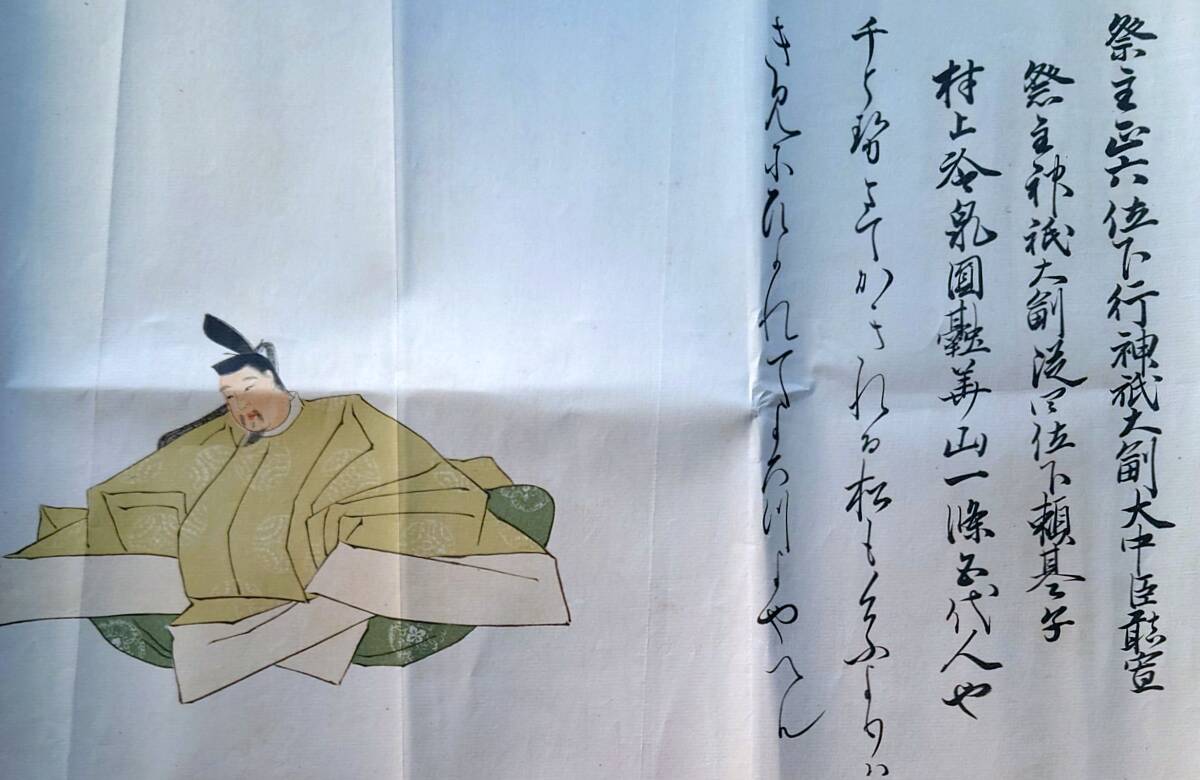 祭主正六位下行神祇大副大中臣能宣
祭主神祇大副従四位下頼基子
村上冷泉圓融華山一條五代人也
千と勢まてかきれる松もけふよりハ
き見にひかれてよろつよやへん